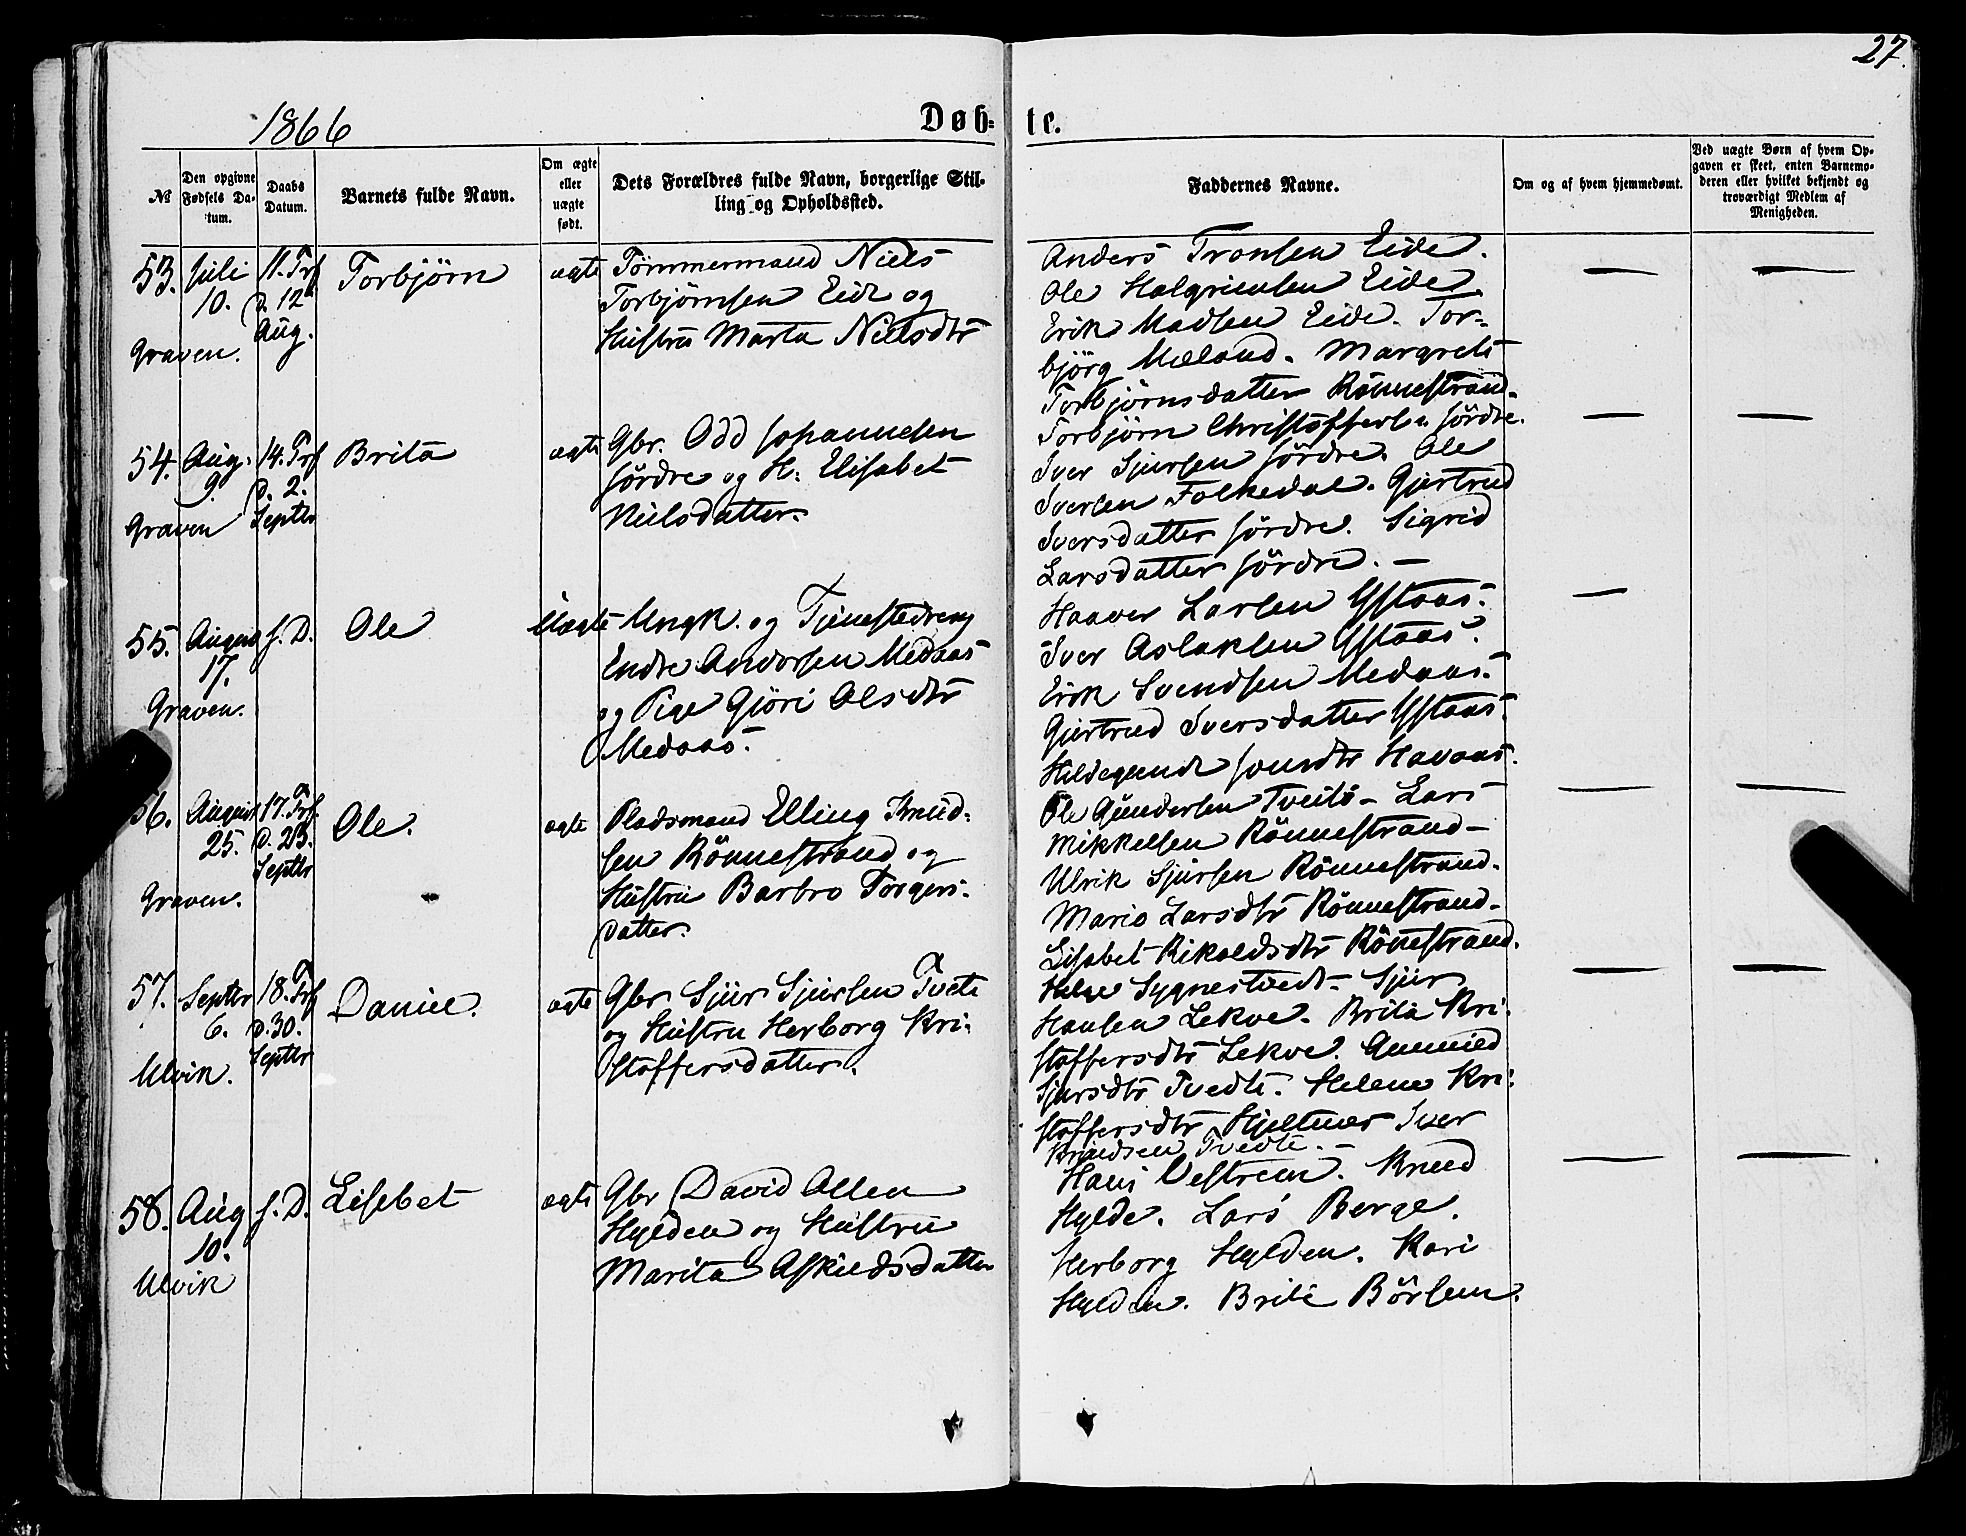 27.
1866
Døb-
te.
№
Den opgivne Fødsels Da-tum.
Daabs Datum.
Barnets fulde Navn.
Om ægte eller uægte født.
Dets Forældres fulde Navn, borgerlige Stil-
ling og Opholdssted.
Faddernes Navne.
Om og af hvem hjemmedøbt.
Ved uægte Børn af hvem Op-
gaven er skeet, enten Barnemo-
deren eller hvilket bekjendt og
troværdigt Medlem af
Menigheden.
53. Juli 10. 11. Trf d. 12 Aug. Torbjörn ægte
Graven.
Tömmermand Niels
Torbjörnsen Eide og
Hustru Marta Nielsdtr
Anders Tronsen Eide.
Ole Halgrimsen Eide
Erik Madsen Eide. Tor-
björg Mæland. Margrete
Torbjörnsdatter Rönnestrand.
54. Aug. 9. 14. Trf d. 2. Septbr Brita ægte
Graven
Gbr. Odd Johannesen
Sördre og H: Elisabet
Nielsdatter.
Torbjörn Christoffers. Sördre.
Iver Sjursen Sördre. Ole
Iversen Folkedal. Gjertrud
Iversdatter Sördre. Sigrid
Larsdatter Sördre. —
55. August 17. s. D. Ole Uægte
Graven.
Ungk. og Tjenestedreng
Endre Andersen Medaas
og Pige Gjöri Olsdtr
Medaas.
Haaver Larsen Ystaas.
Iver Aslaksen Ystaas.
Erik Svendsen Medaas.
Gjertrud Iversdatter Ystaas.
Hildegund Svendtr Havaas.
56. August 25. 17. Trf. d. 23. Septbr Ole. ægte
Graven.
Pladsmand Elling Knud-
sen Rönnestrand og
Hustru Barbro Torgers-
datter.
Ole Gundersen Tveito - Lars
Mikkelsen Rönnestrand -
Ulrik Sjursen Rönnestrand.
Mario Larsdtr Rönnestrand -
Lisabet Rikoldsdtr Rönnestrand.
57. Septbr 6. 18. Trf d. 30. Septbr Daniel. ægte
Ulvik.
Gbr Sjur Sjursen Tvete
og Hustru Herborg Kri-
stoffersdatter.
Helge Sygnestvedt - Sjur
Hansen Lekve. Brita Kri-
stoffersdtr Lekve. Gunnild
Sjursdtr Tvedte. Helene Kri-
stoffersdtr Hjeltnes Iver
Knudsen Tvedte.
58. Aug 10. s. D. Lisebet ægte
Ulvik
Gbr David Olsen
Hylden og Hustru
Marita Askildsdatter
Hans Vestrem. Knud
Hylde. Lars Berge.
Herborg Hylden. Kari
Hylden. Brite Börsem.